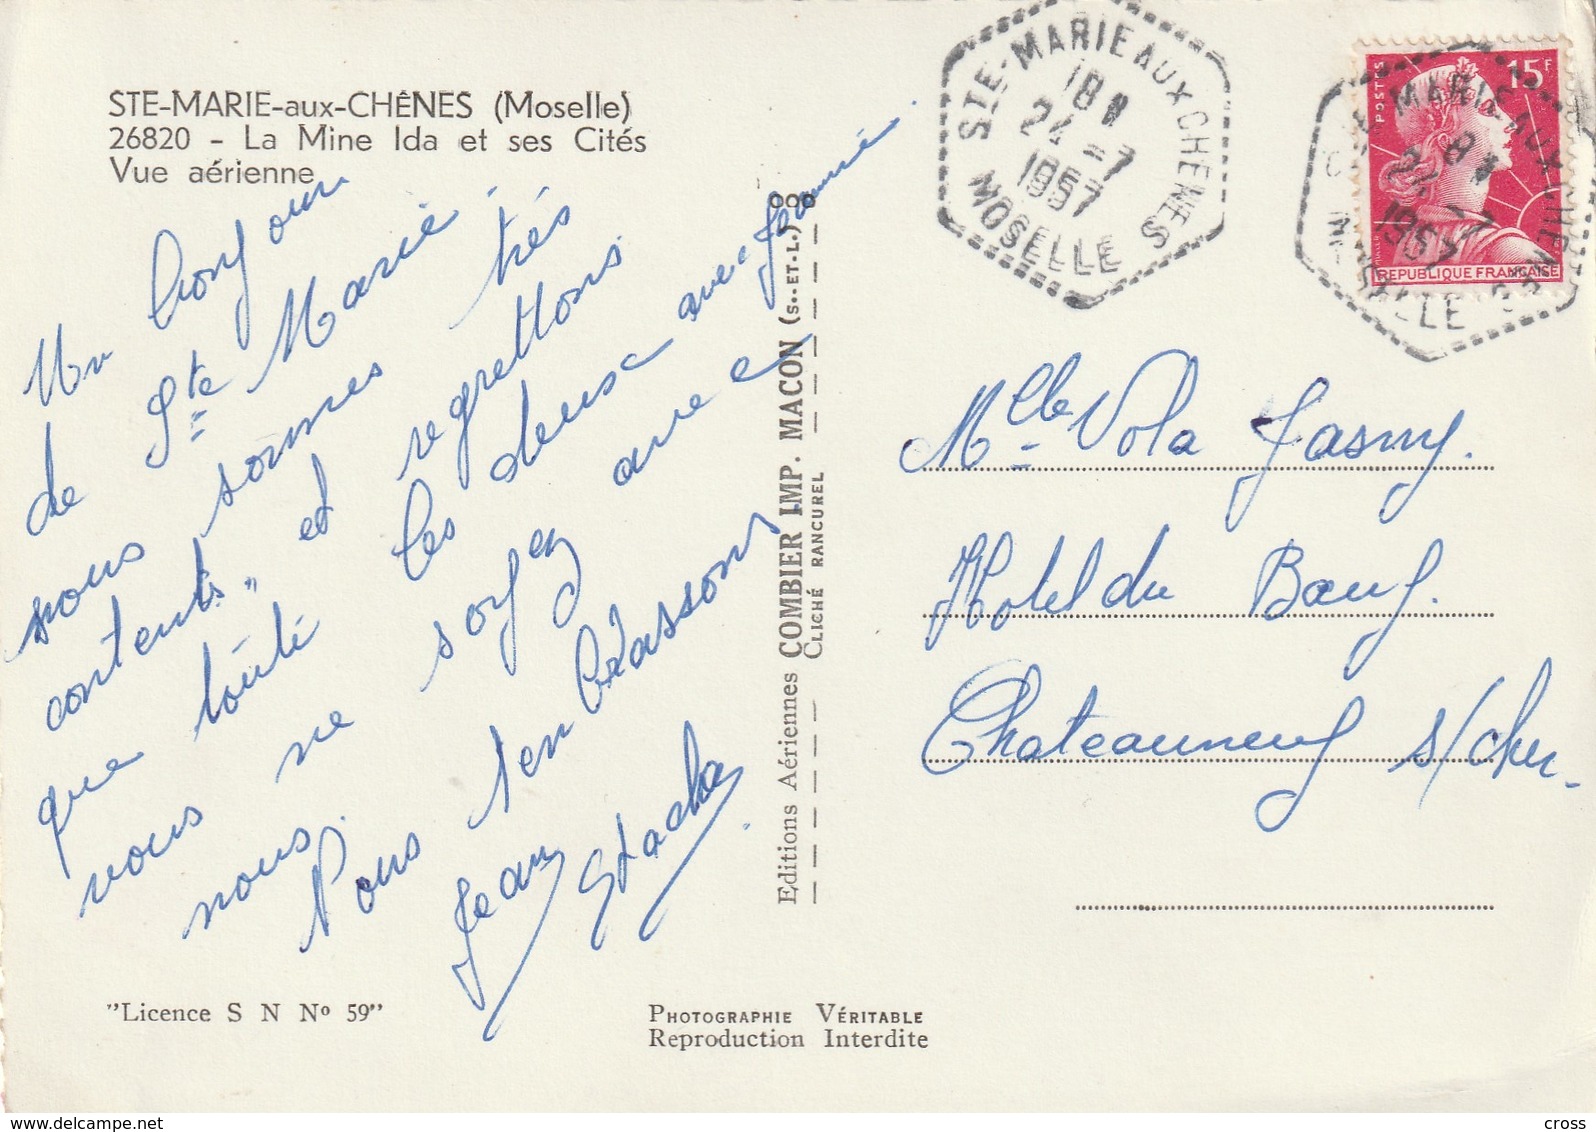 STE-MARIE-aux-CHÊNES (Moselle)
26820 - La Mine Ida et ses Cités
Vue aérienne
Un bonjour
de Ste Marie
nous sommes très
contents et regrettons
que toute les deuse avec
vous ne soyez avec
nous.
Nous t'en
Jean Stacha
"Licence S N Nº 59"
PHOTOGRAPHIE VÉRITABLE
Reproduction Interdite
Editions Aériennes COMBIER IMP. MACON (S.-ET-L.)
CLICHÉ RANCUREL
STE-MARIE AUX CHENES
18
24-7
1957
MOSELLE
POSTES
15F
MULLER
REPUBLIQUE FRANÇAISE
STE-MARIE AUX CHENES
18
24-7
1957
MOSELLE
Mlle Vola Jasmy.
Hotel du Bœuf.
Chateauneuf s/cher-
www.delcampe.net
cross